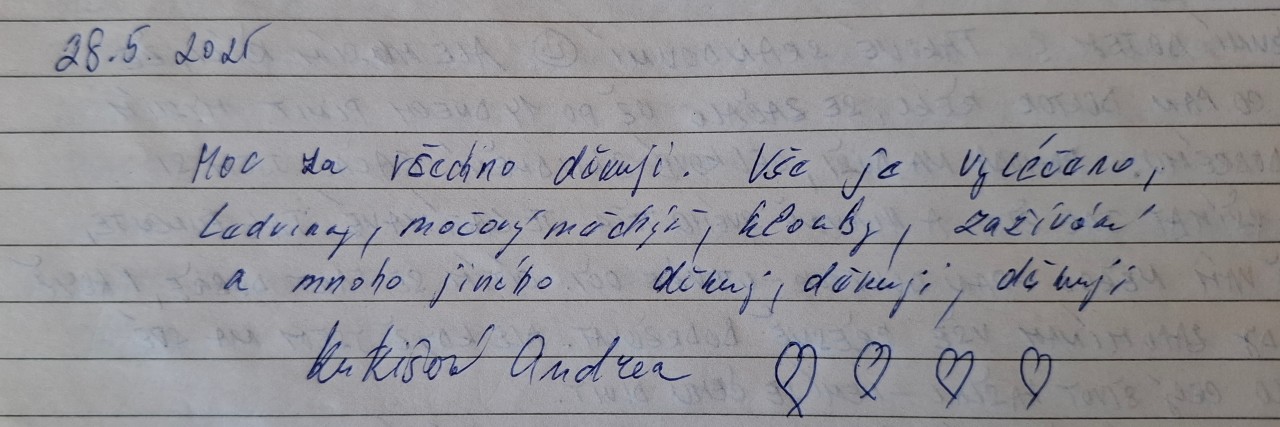 28.5. 2025
Moc za všechno děkuji. Vše je vyléčeno,
Ledviny, močový měchýř, klouby, zažívání
a mnoho jiného děkuj, děkuji, děkuji
Andrea